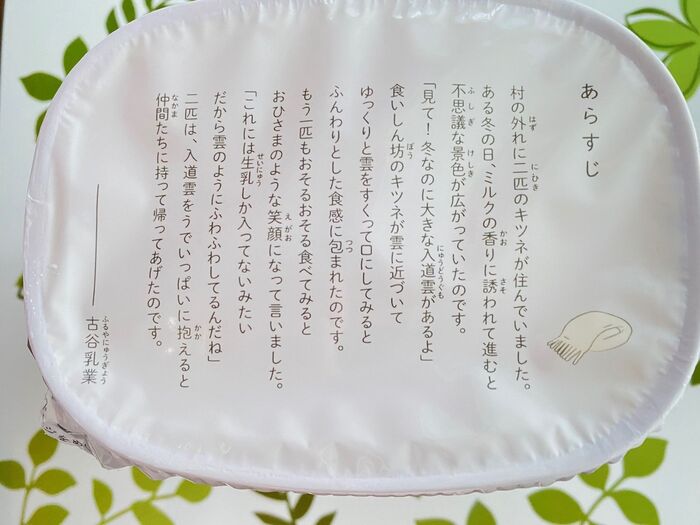 あらすじ
村の外れに二匹のキツネが住んでいました。
ある冬の日、ミルクの香りに誘われて進むと
不思議な景色が広がっていたのです。
「見て！冬なのに大きな入道雲があるよ」
食いしん坊のキツネが雲に近づいて
ゆっくりと雲をすくって口にしてみると
ふんわりとした食感に包まれたのです。
もう一匹もおそるおそる食べてみると
おひさまのような笑顔になって言いました。
「これには生乳しか入ってないみたい
だから雲のようにふわふわしてるんだね」
二匹は、入道雲をうでいっぱいに抱えると
仲間たちに持って帰ってあげたのです。
古谷乳業